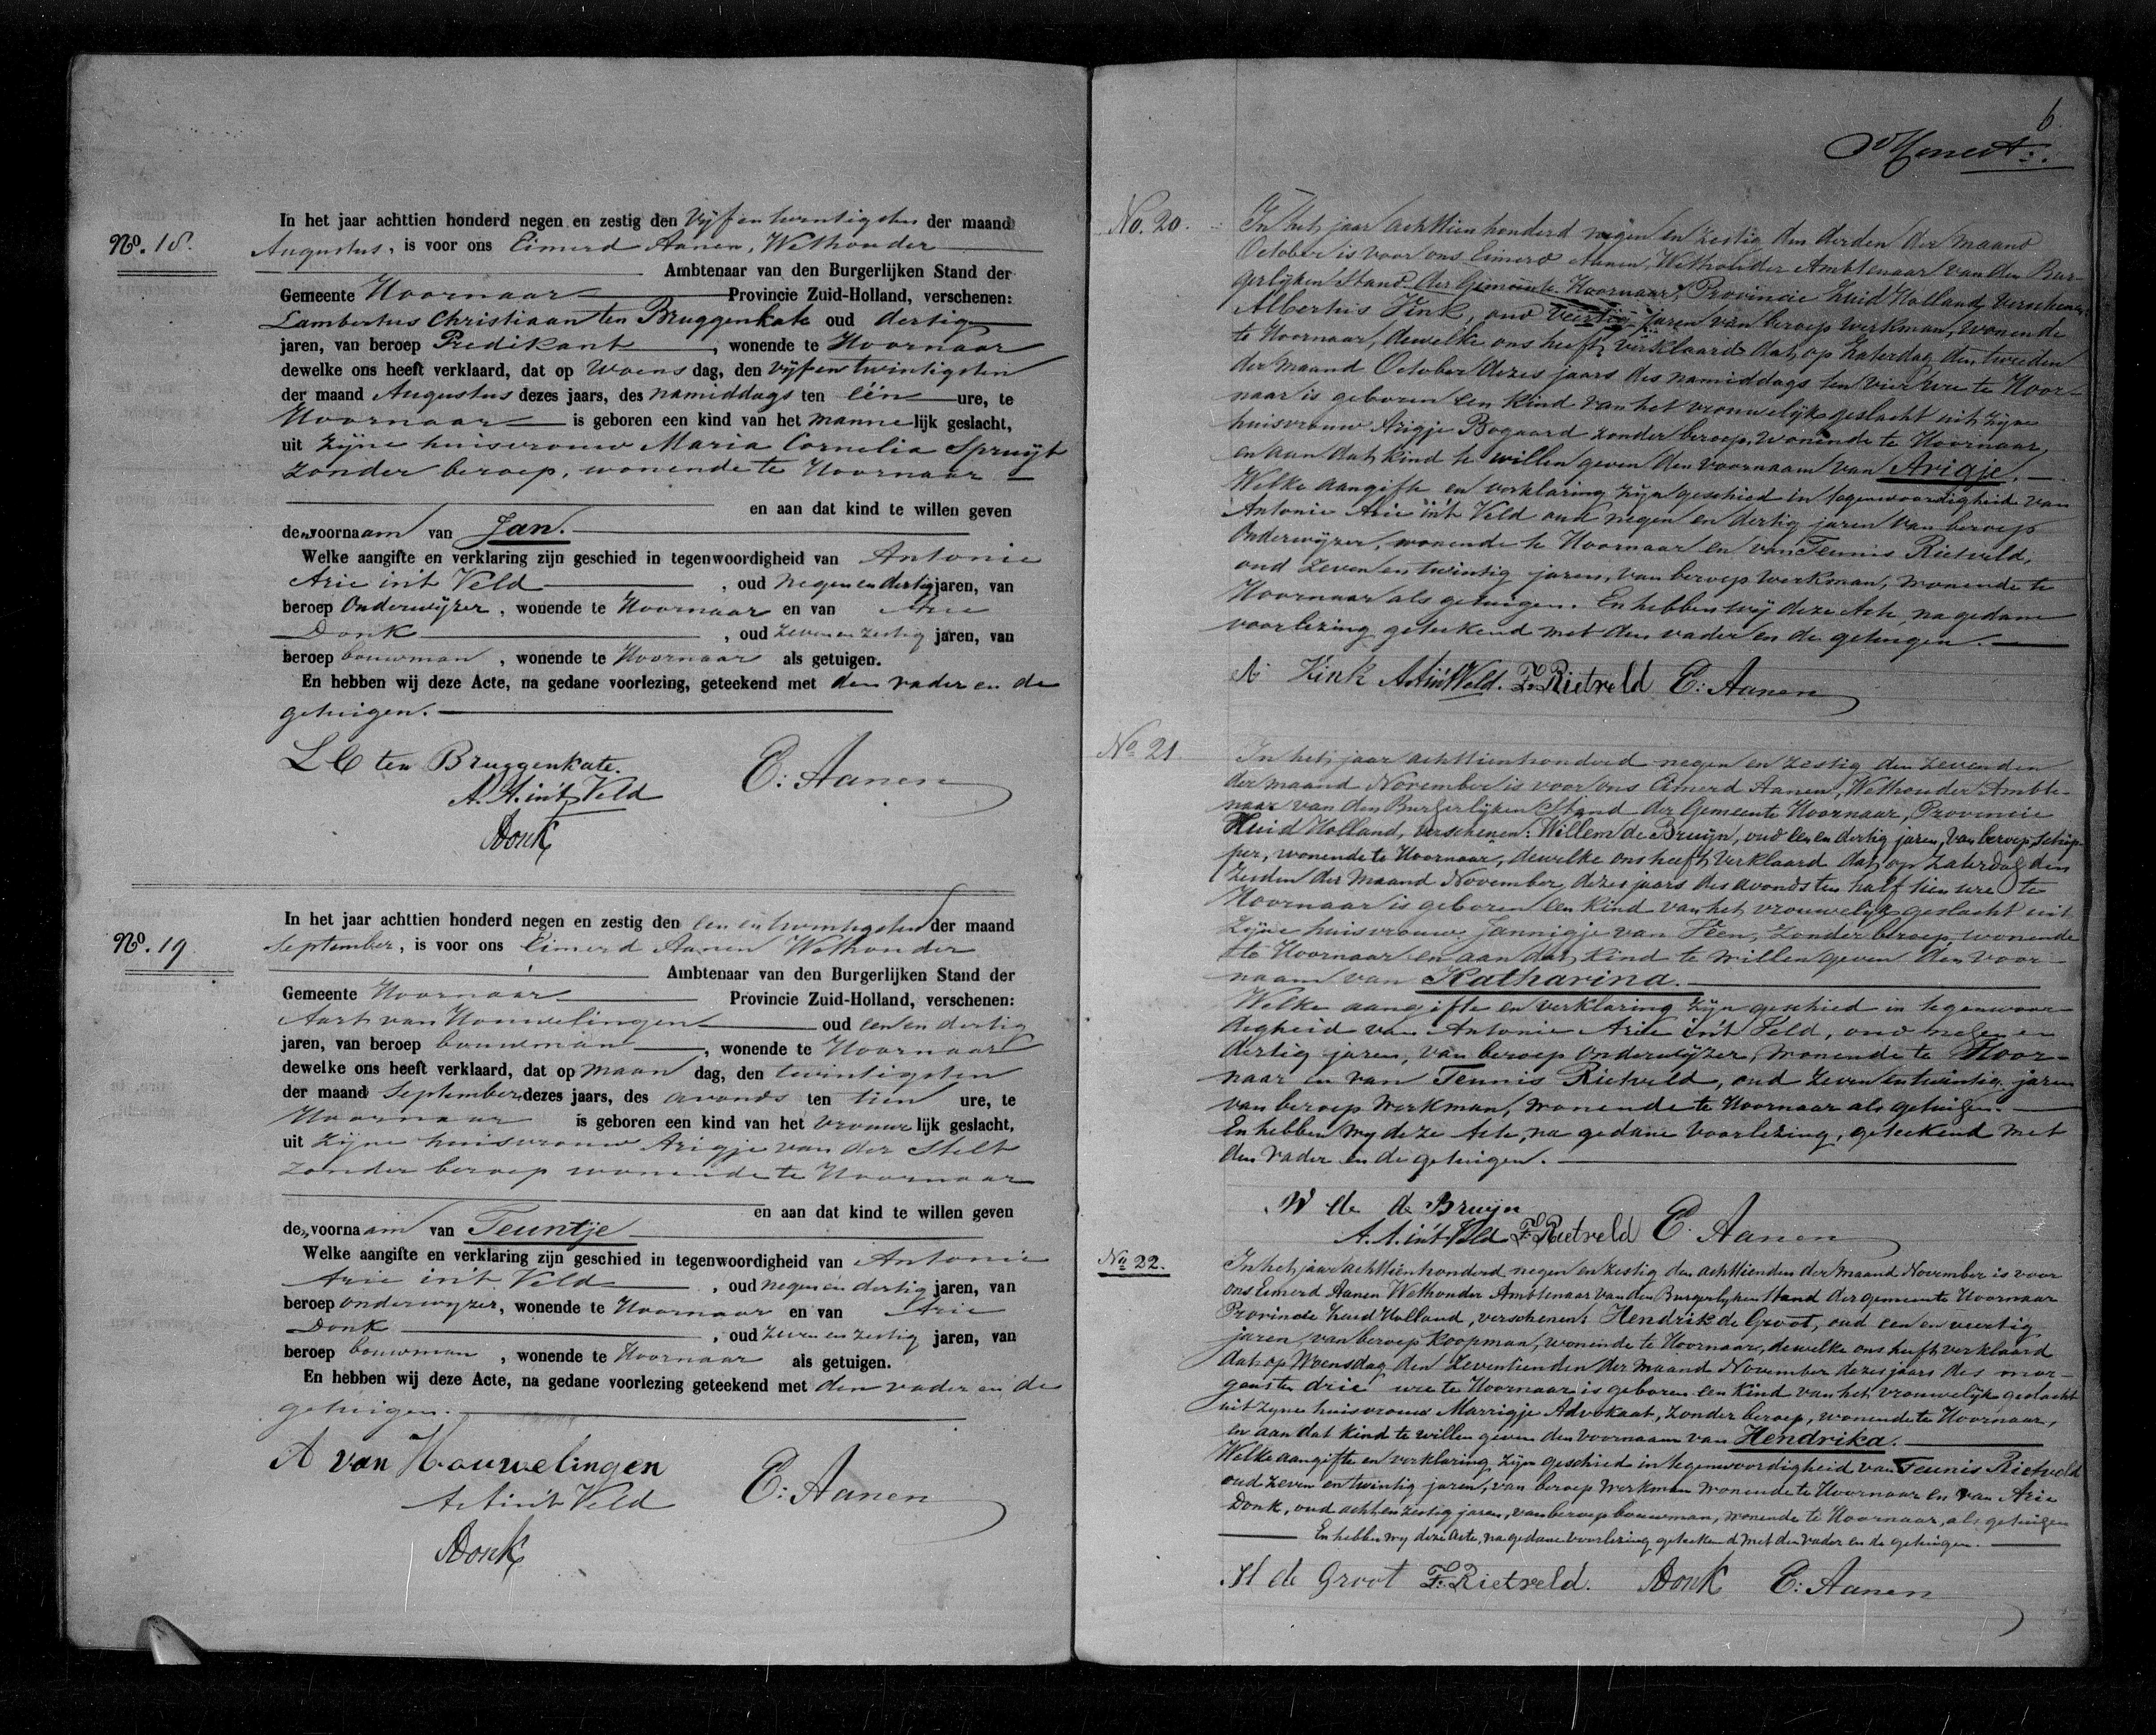 No. 18.
In het jaar achttien honderd negen en zestig den Vijf en twintigsten der maand
Augustus, is voor ons Eimerd Aanen, Wethouder
Ambtenaar van den Burgerlijken Stand der
Gemeente Hoornaar Provincie Zuid-Holland, verschenen:
Lambertus Christiaan ten Bruggenkate oud dertig
jaren, van beroep Predikant, wonende te Hoornaar
dewelke ons heeft verklaard, dat op Woensdag, den vijf en twintigsten
der maand Augustus dezes jaars, des namiddags ten één ure, te
Hoornaar is geboren een kind van het mannelijk geslacht,
uit zijne huisvrouw Maria Cornelia Spruijt
zonder beroep, wonende te Hoornaar
en aan dat kind te willen geven
den voornaam van Jan.
Welke aangifte en verklaring zijn geschied in tegenwoordigheid van Antonie
Arie in't Veld, oud negen en dertig jaren, van
beroep Onderwijzer, wonende te Hoornaar en van Arie
Donk, oud zeven en zestig jaren, van
beroep bouwman, wonende te Hoornaar als getuigen.
En hebben wij deze Acte, na gedane voorlezing, geteekend met den vader en de
getuigen.
L C ten Bruggenkate. E: Aanen
A. A. in't Veld
ADonk
No. 19
In het jaar achttien honderd negen en zestig den een en twintigsten der maand
September, is voor ons Eimerd Aanen Wethouder
Ambtenaar van den Burgerlijken Stand der
Gemeente Hoornaar Provincie Zuid-Holland, verschenen:
Aart van Houwelingen oud een en dertig
jaren, van beroep bouwman, wonende te Hoornaar
dewelke ons heeft verklaard, dat op maandag, den twintigsten
der maand September dezes jaars, des avonds ten tien ure, te
Hoornaar is geboren een kind van het vrouwelijk geslacht,
uit zijne huisvrouw Arigje van der Stelt
zonder beroep wonende te Hoornaar
en aan dat kind te willen geven
den voornaam van Teuntje
Welke aangifte en verklaring zijn geschied in tegenwoordigheid van Antonie
Arie in't Veld, oud negen en dertig jaren, van
beroep onderwijzer, wonende te Hoornaar en van Arie
Donk, oud zeven en zestig jaren, van
beroep bouwman, wonende te Hoornaar als getuigen.
En hebben wij deze Acte, na gedane voorlezing geteekend met den vader en de
getuigen.
A van Houwelingen E: Aanen
A A in't Veld
ADonk
6
No. 20.
In het jaar achttienhonderd negen en zestig den derden der maand
October is voor ons Eimerd Aanen, Wethouder Ambtenaar van den Bur-
gerlijken Stand der Gemeente Hoornaar, Provincie Zuid Holland, verschenen:
Albertus Vink, oud veertig jaren van beroep werkman, wonende
te Hoornaar, dewelke ons heeft verklaard dat op Zaterdag den tweeden
der maand October dezes jaars des namiddags ten vier ure te Hoor-
naar is geboren een kind van het vrouwelijk geslacht uit zijne
huisvrouw Arigje Bogaard zonder beroep, wonende te Hoornaar,
en aan dat kind te willen geven den voornaam van Arigje.
Welke aangifte en verklaring zijn geschied in tegenwoordigheid van
Antonie Arie in't Veld oud negen en dertig jaren van beroep
Onderwijzer, wonende te Hoornaar en van Teunis Rietveld,
oud zeven en twintig jaren, van beroep werkman, wonende te
Hoornaar als getuigen. En hebben wij deze Acte, na gedane
voorlezing geteekend met den vader en de getuigen.
A Vink A A in't Veld. T. Rietveld E: Aanen
No 21.
In het jaar achttienhonderd negen en zestig den zevenden
der maand November is voor ons Eimerd Aanen, Wethouder Ambte-
naar van den Burgerlijken Stand der Gemeente Hoornaar, Provincie
Zuid Holland, verschenen: Willem de Bruijn, oud een en dertig jaren, van beroep schip-
per, wonende te Hoornaar, dewelke ons heeft verklaard dat op zaterdag den
zesden der maand November dezes jaars des avonds ten half tien ure te
Hoornaar is geboren een kind van het vrouwelijk geslacht uit
zijne huisvrouw Jannigje van Veen, zonder beroep wonende
te Hoornaar en aan dat kind te willen geven den voor-
naam van Katharina.
Welke aangifte en verklaring zijn geschied in tegenwoor-
digheid van Antonie Arie in't Veld, oud negen en
dertig jaren, van beroep Onderwijzer, wonende te Hoor-
naar en van Teunis Rietveld, oud zeven en twintig jaren
van beroep werkman, wonende te Hoornaar als getuigen.
En hebben wij deze Acte, na gedane voorlezing, geteekend met
den vader en de getuigen.
W de de Bruijn
A. A. in't Veld T. Rietveld E. Aanen
No 22.
In het jaar achttienhonderd negen en zestig den achttienden der maand November is voor
ons Eimerd Aanen Wethouder Ambtenaar van den Burgerlijken Stand der gemeente Hoornaar
Provincie Zuid Holland, verschenen: Hendrik de Groot, oud een en veertig
jaren, van beroep koopman, wonende te Hoornaar, dewelke ons heeft verklaard
dat op Woensdag den zeventienden der maand November dezes jaars des mor-
gens ten drie ure te Hoornaar is geboren een kind van het vrouwelijk geslacht
uit zijne huisvrouw Marrigje Advokaat, zonder beroep, wonende te Hoornaar,
en aan dat kind te willen geven den voornaam van Hendrika.
Welke aangifte en verklaring zijn geschied in tegenwoordigheid van Teunis Rietveld
oud zeven en twintig jaren, van beroep werkman wonende te Hoornaar en van Arie
Donk, oud acht en zestig jaren, van beroep bouwman, wonende te Hoornaar, als getuigen
En hebben wij deze acte, na gedane voorlezing geteekend met den vader en de getuigen.
H de Groot T. Rietveld. ADonk E: Aanen